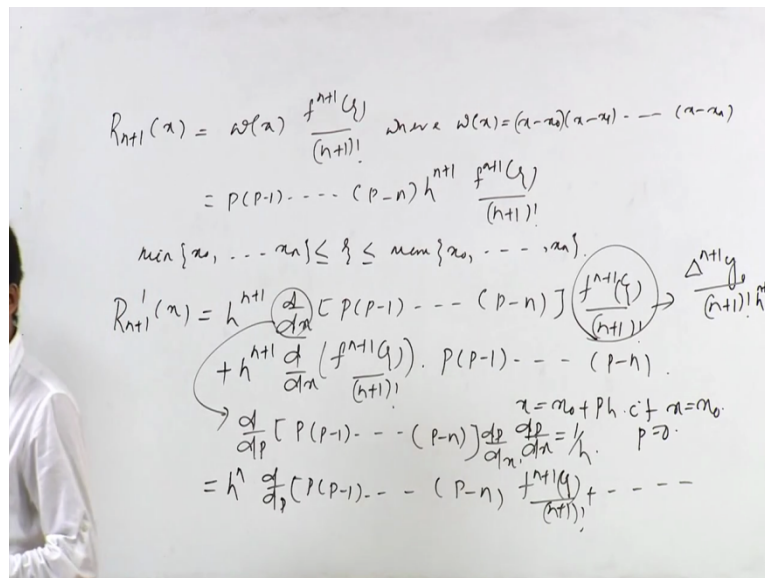 R_{n+1}(x) = w(x) f^{n+1}(ξ)/(n+1)! where w(x)=(x-x_0)(x-x_1)---- (x-x_n)
= P(P-1)----- (P-n) h^{n+1} f^{n+1}(ξ)/(n+1)!
min{x_0, ... x_n} ≤ ξ ≤ max{x_0, ---, x_n}.
R'_{n+1}(x) = h^{n+1} d/dx [P(P-1)---- (P-n)] f^{n+1}(ξ)/(n+1)! → Δ^{n+1}y_0/(n+1)! h^{n+1}
+ h^{n+1} d/dx (f^{n+1}(ξ)/(n+1)!). P(P-1)---- (P-n).
x=x_0+Ph. if x=x_0.
d/dp [P(P-1)---- (P-n)] dp/dx, dp/dx = 1/h. P=0.
= h^n d/dp [P(P-1)---- (P-n) f^{n+1}(ξ)/(n+1)! + ----